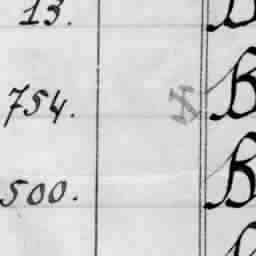 13. B
754. B
500. B